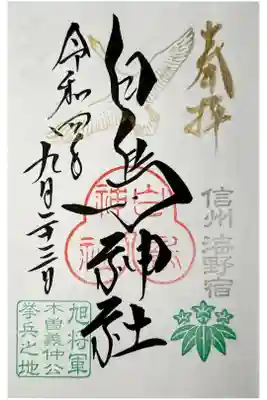 奉拝
信州 海野宿
白鳥神社
白鳥神社
令和四年
九月二十三日
旭将軍
木曽義仲公
挙兵之地